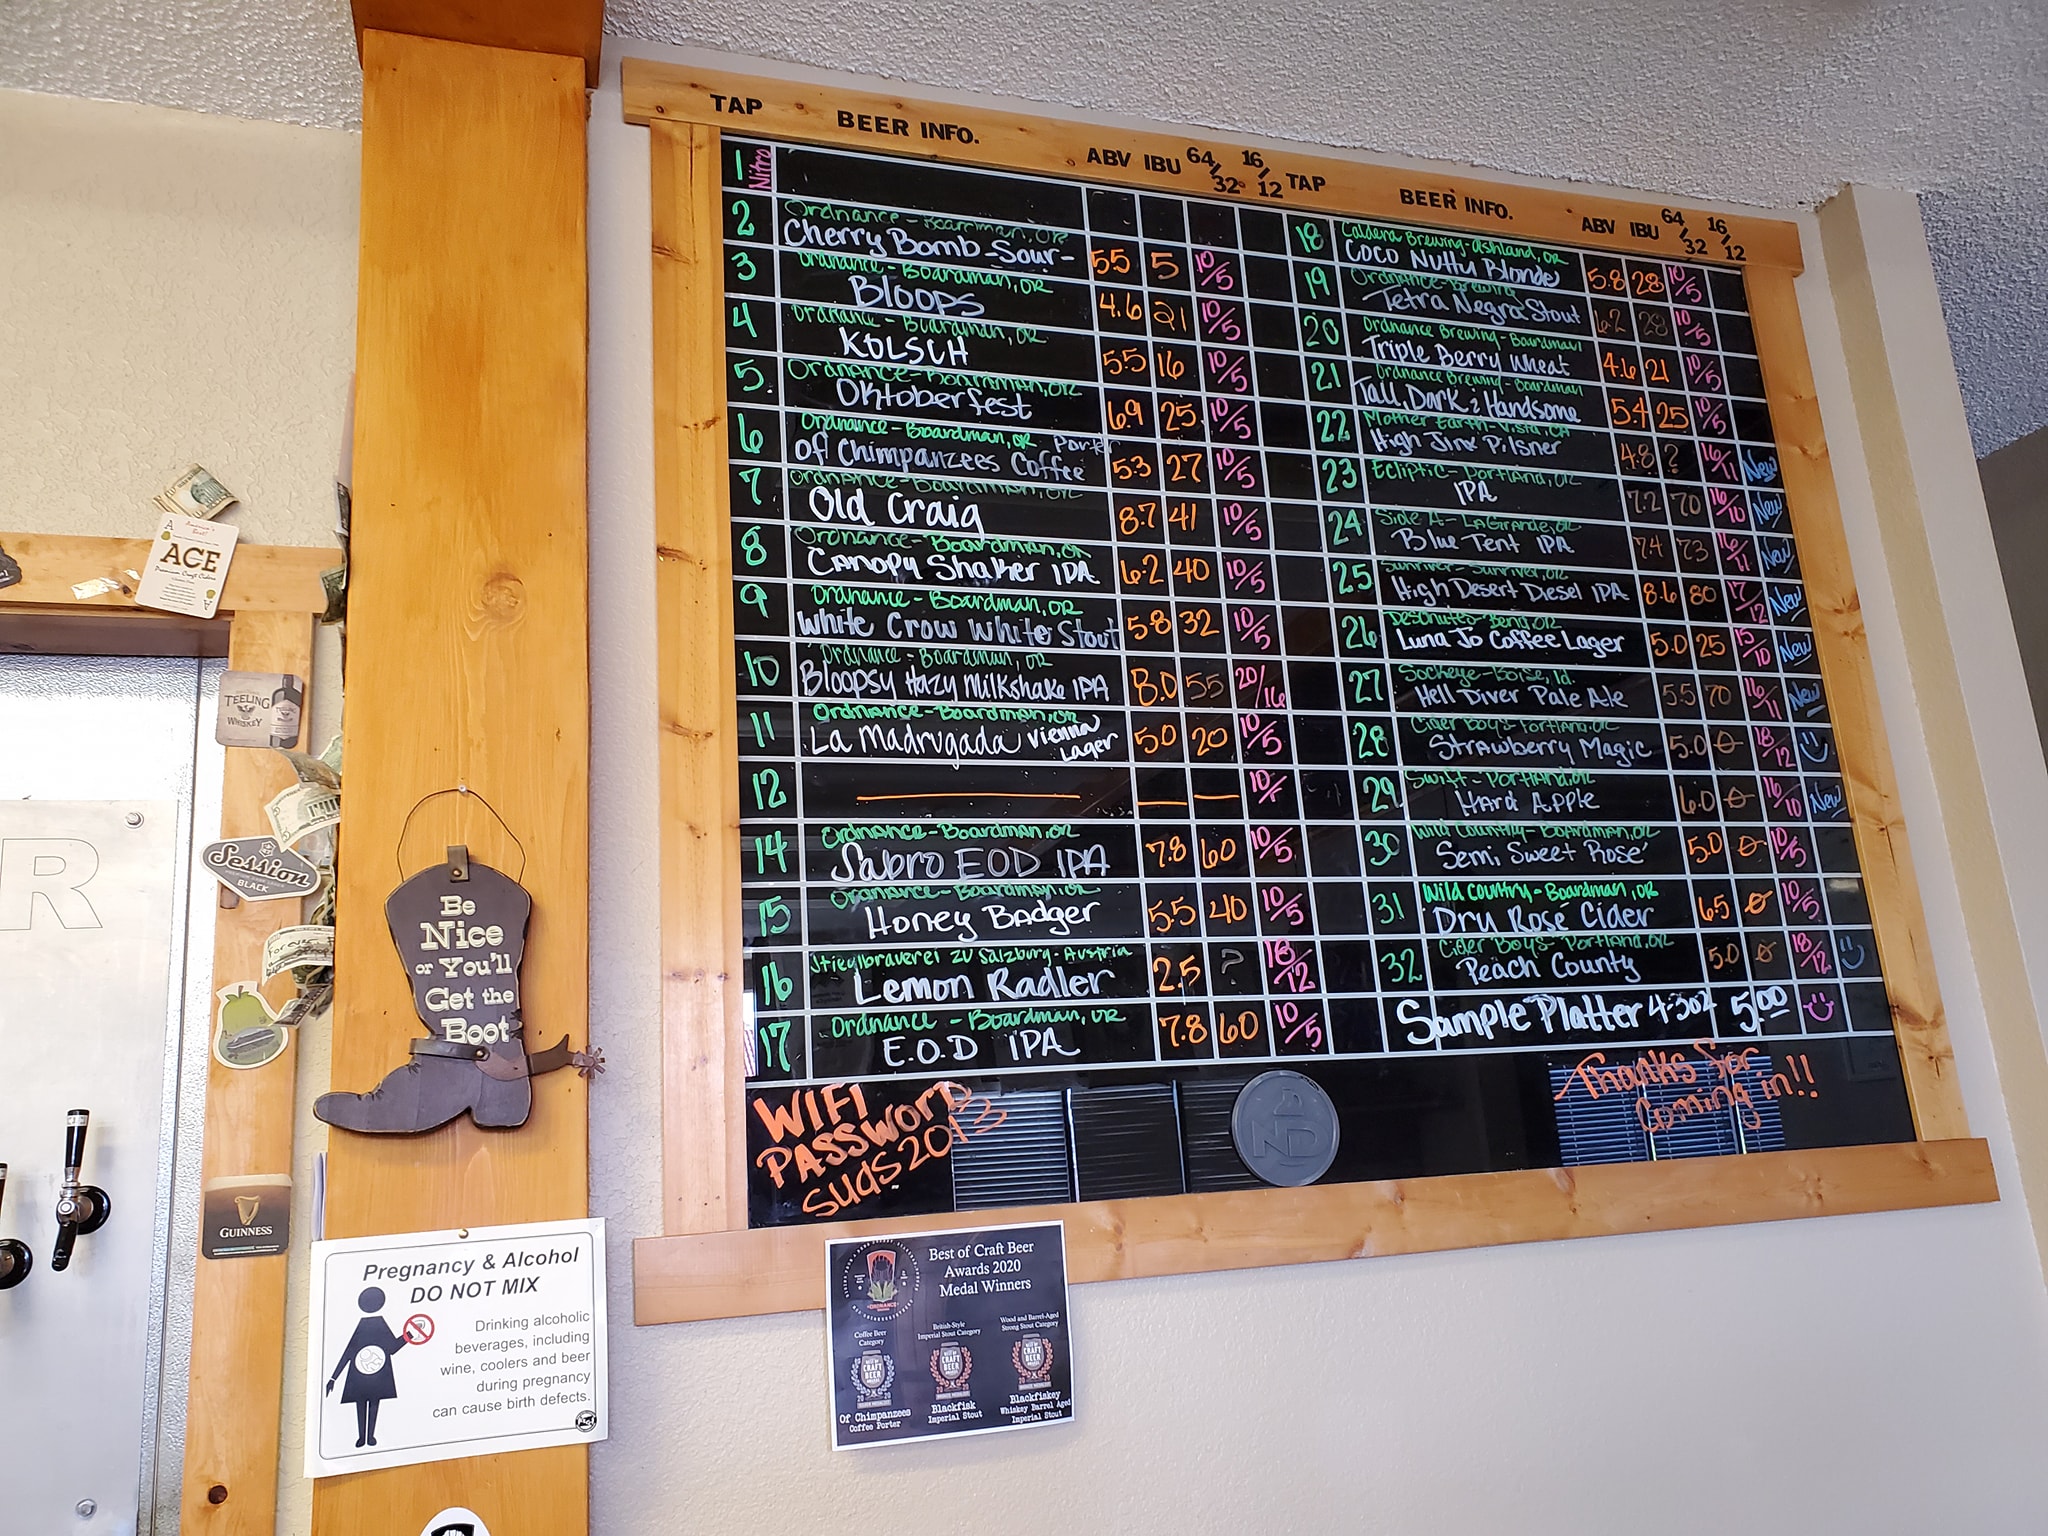 TAP BEER INFO. ABV IBU 64/32 16/12 TAP BEER INFO. ABV IBU 64/32 16/12
1 Nitro
2 Ordnance - Boardman, OR
Cherry Bomb - Sour - 5.5 5 10/5
3 Ordnance - Boardman, OR
Bloops 4.6 21 10/5
4 Ordnance - Boardman, OR
KOLSCH 5.5 16 10/5
5. Ordnance - Boardman, OR
Oktoberfest 6.9 25 10/5
6 Ordnance - Boardman, OR Porter
Of Chimpanzees Coffee 5.3 27 10/5
7 Ordnance - Boardman, OR
Old Craig 8.7 41 10/5
8 Ordnance - Boardman, OR
Canopy Shaker IPA 6.2 40 10/5
9 Ordnance - Boardman, OR
White Crow White Stout 5.8 32 10/5
10 Ordnance - Boardman, OR
Bloopsy Hazy Milkshake IPA 8.0 55 20/16
11 Ordnance - Boardman, OR
La Madrugada Vienna Lager 5.0 20 10/5
12
14 Ordnance - Boardman, OR
Sabro EOD IPA 7.8 60 10/5
15 Ordnance - Boardman, OR
Honey Badger 5.5 40 10/5
16 Stieglbrauerei zu Salzburg - Austria
Lemon Radler 2.5 ? 18/12
17 Ordnance - Boardman, OR
E.O.D IPA 7.8 60 10/5
18 Caldera Brewing - Ashland, OR
Coco Nutty Blonde 5.8 28 10/5
19 Ordnance - Brewing
Tetra Negra Stout 6.2 28 10/5
20 Ordnance Brewing - Boardman
Triple Berry Wheat 4.6 21 10/5
21 Ordnance Brewing - Boardman
Tall, Dark & Handsome 5.4 25 10/5
22 Mother Earth - Vista, CA
High Jinx Pilsner 4.8 ? 16/11 New
23 Ecliptic - Portland, OR
IPA 7.2 70 16/10 New
24 Side A - La Grande, OR
Blue Tent IPA 7.4 73 16/11 New
25 Sunriver - Sunriver, OR
High Desert Diesel IPA 8.6 80 17/12 New
26 Deschutes - Bend, OR
Luna Jo Coffee Lager 5.0 25 15/10 New
27 Sockeye - Boise, Id.
Hell Diver Pale Ale 5.5 70 16/11 New
28 Cider Boys - Portland, OR
Strawberry Magic 5.0 0 18/12
29 Swift - Portland, OR
Hard Apple 6.0 0 16/10 New
30 Wild Country - Boardman, OR
Semi Sweet Rosé 5.0 0 10/5
31 Wild Country - Boardman, OR
Dry Rose Cider 6.5 0 10/5
32 Cider Boys - Portland, OR
Peach County 5.0 0 18/12
Sample Platter 4-3oz 5.00
WIFI
PASSWORD
suds2013
Thanks for
coming in!!
ND
ACE
Premium Craft Ciders
TEELING
WHISKEY
Session
BLACK
GUINNESS
R
Be
Nice
or You'll
Get the
Boot
Pregnancy & Alcohol
DO NOT MIX
Drinking alcoholic
beverages, including
wine, coolers and beer
during pregnancy
can cause birth defects.
Best of Craft Beer
Awards 2020
Medal Winners
ORDNANCE
Coffee Beer
Category
Of Chimpanzees
Coffee Porter
British-Style
Imperial Stout Category
Blackfisk
Imperial Stout
Wood and Barrel-Aged
Strong Stout Category
Blackfiskey
Whiskey Barrel Aged
Imperial Stout